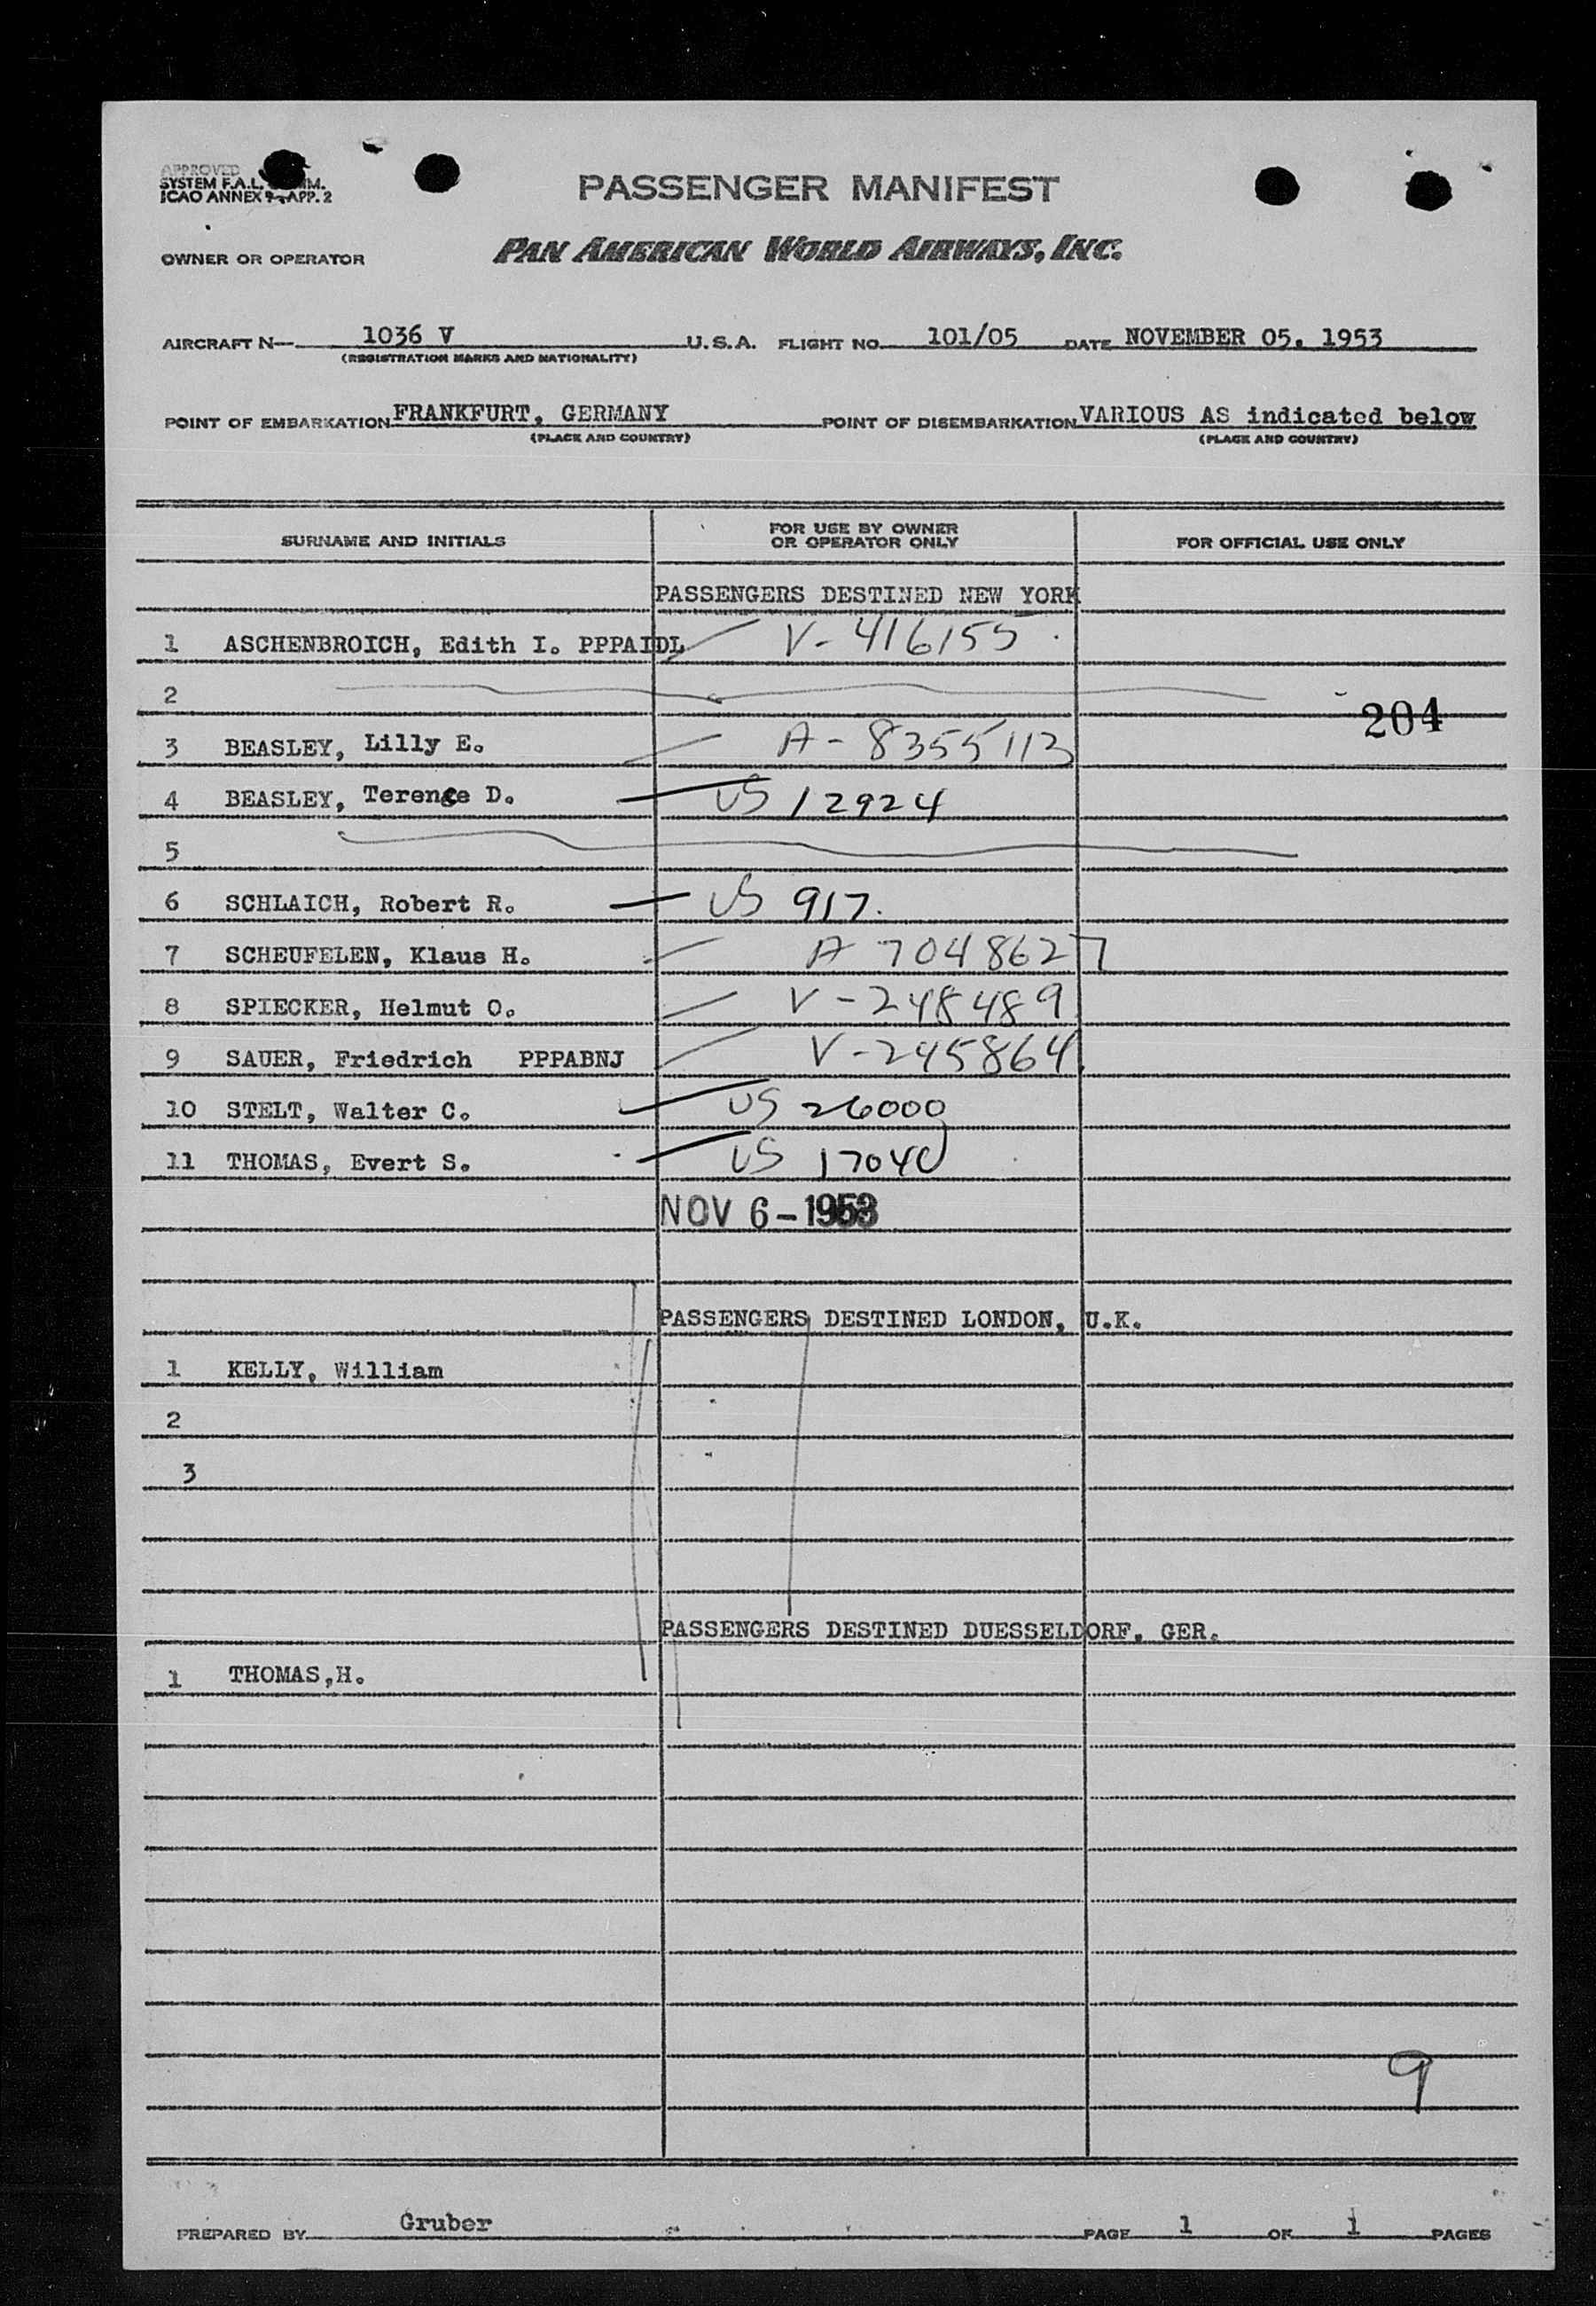 APPROVED
SYSTEM F.A.L.
ICAO ANNEX 9-APP. 2
PASSENGER MANIFEST
OWNER OR OPERATOR PAN AMERICAN WORLD AIRWAYS, INC.
AIRCRAFT N— 1036 V U.S.A. FLIGHT NO. 101/05 DATE NOVEMBER 05, 1953
(REGISTRATION MARKS AND NATIONALITY)
POINT OF EMBARKATION FRANKFURT, GERMANY POINT OF DISEMBARKATION VARIOUS AS indicated below
(PLACE AND COUNTRY) (PLACE AND COUNTRY)
SURNAME AND INITIALS FOR USE BY OWNER OR OPERATOR ONLY FOR OFFICIAL USE ONLY
PASSENGERS DESTINED NEW YORK
1 ASCHENBROICH, Edith I. PPPAIDL V-416155
2
204
3 BEASLEY, Lilly E. A-8355113
4 BEASLEY, Terence D. US 12924
5
6 SCHLAICH, Robert R. US 917.
7 SCHEUFELEN, Klaus H. A 7048627
8 SPIECKER, Helmut O. V-248489
9 SAUER, Friedrich PPPABNJ V-245864
10 STELT, Walter C. US 26000
11 THOMAS, Evert S. US 17040
NOV 6-1953
PASSENGERS DESTINED LONDON, U.K.
1 KELLY, William
2
3
PASSENGERS DESTINED DUESSELDORF, GER.
1 THOMAS,H.
9
PREPARED BY Gruber PAGE 1 OF 1 PAGES